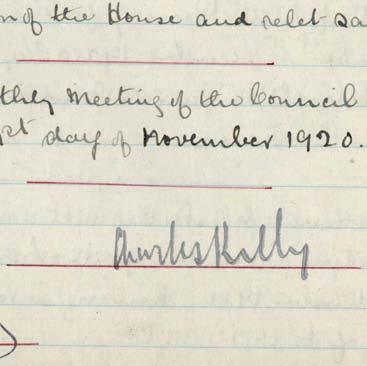 of the House and relet
thly Meeting of the Council
st day of November 1920.
Charles Kelly